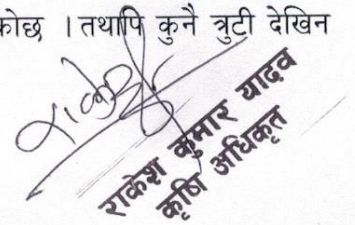 कोछ । तथापि कुनै त्रुटी देखिन
राकेश कुमार यादव
कृषि अधिकृत